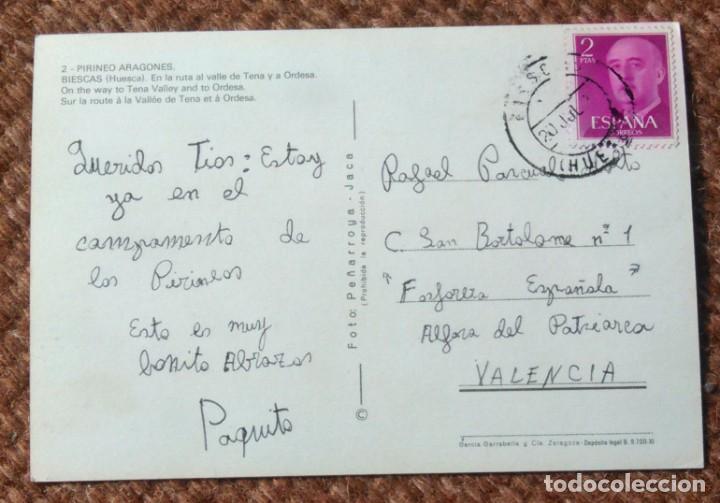 2 - PIRINEO ARAGONES.
BIESCAS (Huesca). En la ruta al valle de Tena y a Ordesa.
On the way to Tena Valley and to Ordesa.
Sur la route à la Vallée de Tena et à Ordesa.
Queridos Tios: Estoy
ya en el
campamento de
los Pirineos
Esto es muy
bonito Abrazos
Paquito
© Foto: Peñarroya - Jaca
(Prohibida la reproducción)
2
PTAS
ESPAÑA
CORREOS
20 JUL
(HUESCA)
Rafael Pascual
C. San Bortolome nº 1
"Fosforera Española"
Alfara del Patriarca
VALENCIA
García Garrabella y Cía. Zaragoza - Depósito legal B.
todocoleccion.net